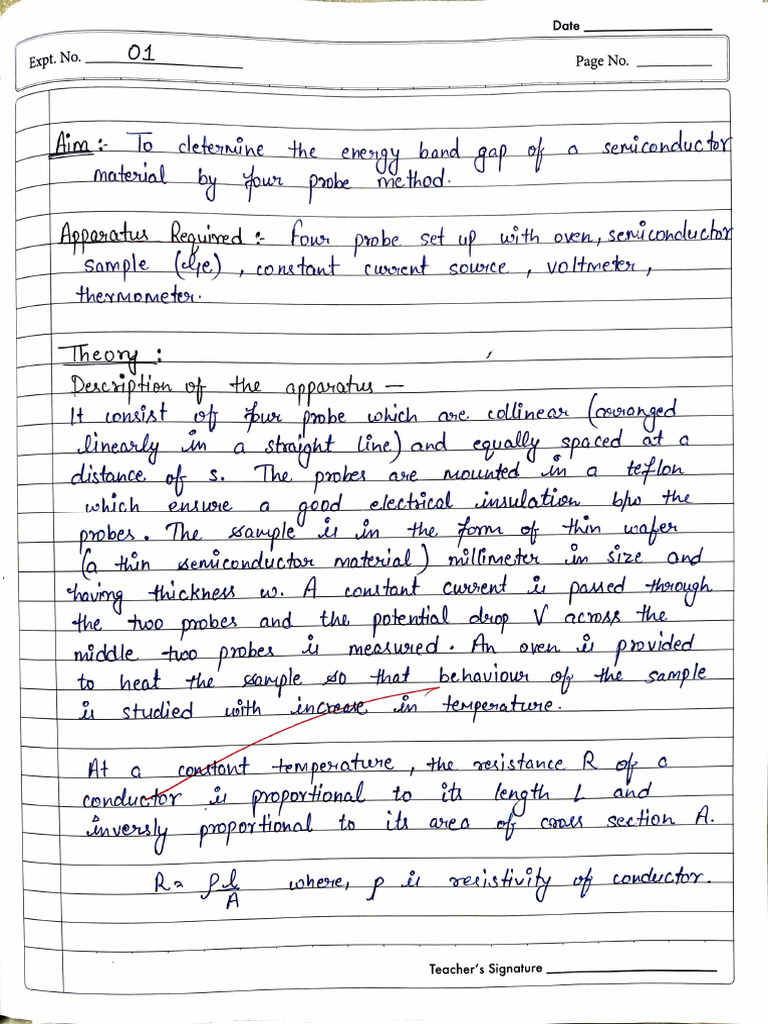 Date
Expt. No. 01
Page No.
Aim :- To determine the energy band gap of a semiconductor
material by four probe method.
Apparatus Required :- Four probe set up with oven, semiconductor
sample (Ge) , constant current source , voltmeter ,
thermometer.
Theory :
Description of the apparatus —
It consist of four probe which are collinear (arranged
linearly in a straight line) and equally spaced at a
distance of s. The probes are mounted in a teflon
which ensure a good electrical insulation b/w the
probes. The sample is in the form of thin wafer
(a thin semiconductor material) millimeter in size and
having thickness w. A constant current is passed through
the two probes and the potential drop V across the
middle two probes is measured. An oven is provided
to heat the sample so that behaviour of the sample
is studied with increase in temperature.
At a constant temperature, the resistance R of a
conductor is proportional to its length L and
inversly proportional to its area of cross section A.
R = ρ l/A where, ρ is resistivity of conductor.
Teacher's Signature